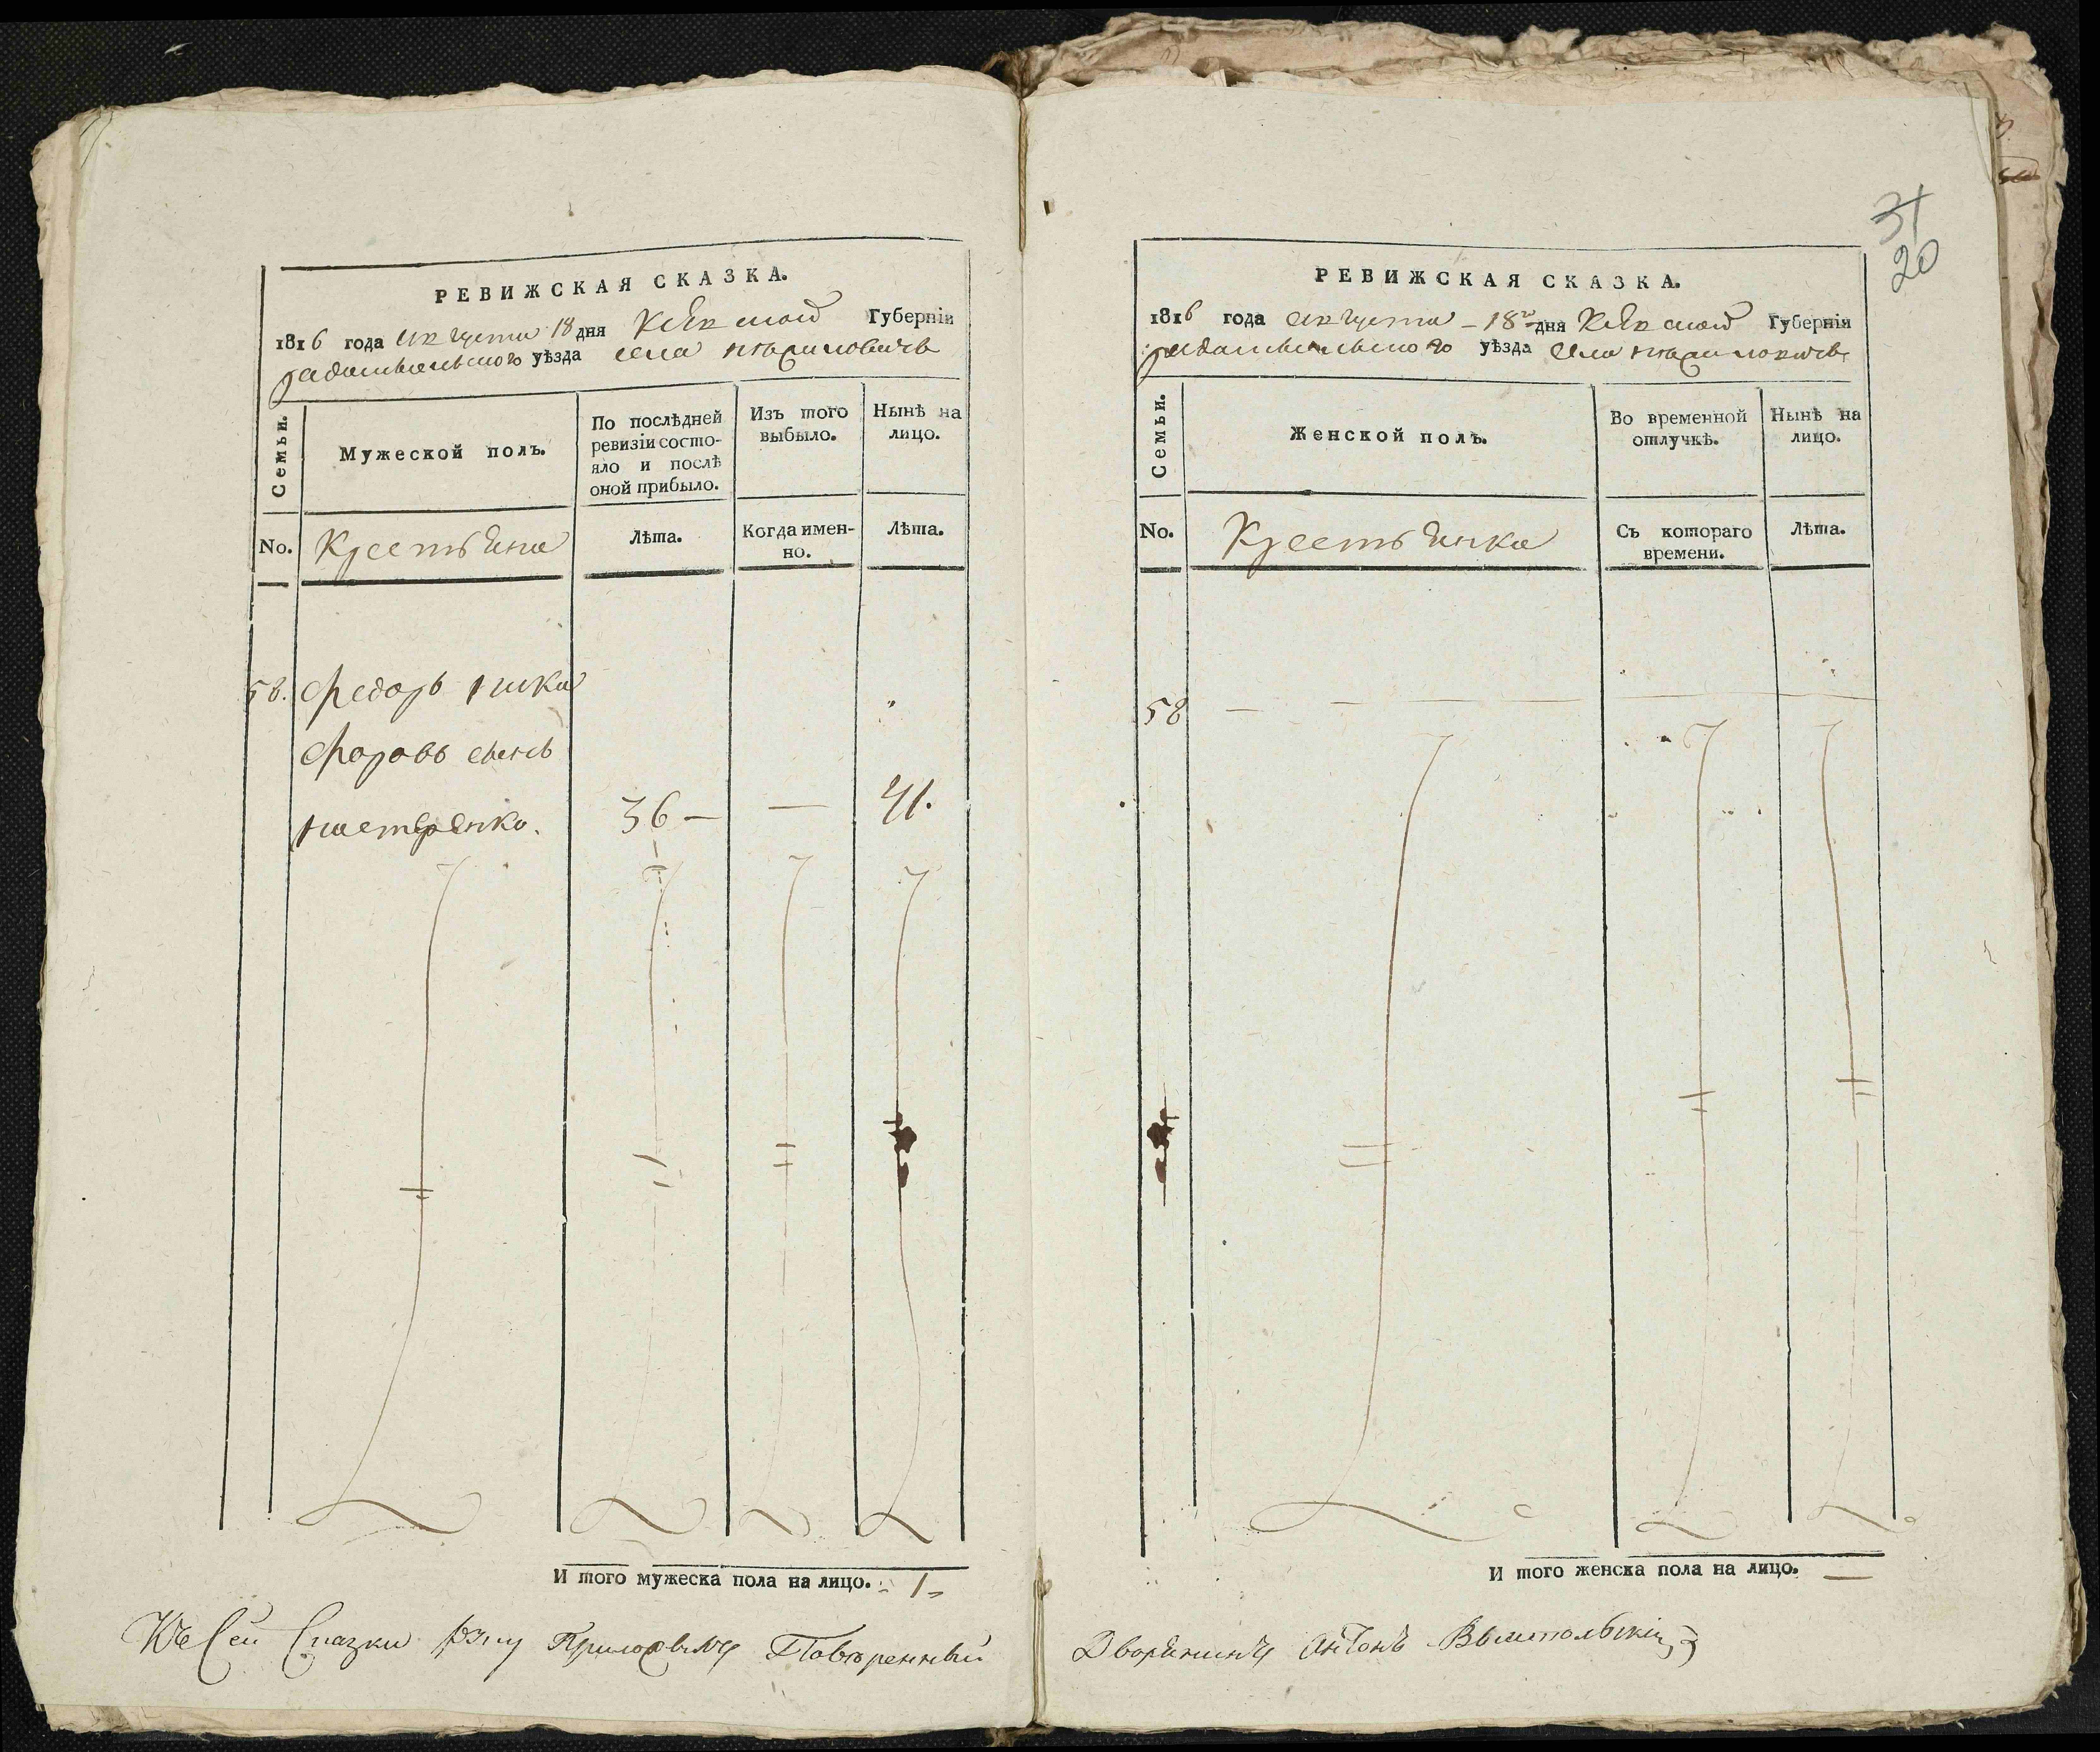 РЕВИЖСКАЯ СКАЗКА.
1816 года августа 18 дня Киевской Губерніи
радомысльского уѣзда села
Семьи.
Мужеской полъ.
По послѣдней ревизіи состо-
яло и послѣ
оной прибыло.
Изъ того
выбыло.
Нынѣ на
лицо.
No.
Крестьяне
Лѣта.
Когда имен-
но.
Лѣта.
58. Федоръ ники
форовъ сынъ
нестеренко. 36 — — 41.
И того мужеска пола на лицо. 1
Къ Сей Сказки руку Приложилъ Повѣренный
31
20
РЕВИЖСКАЯ СКАЗКА.
1816 года августа 18го дня Киевской Губернія
радомысльского уѣзда села
Семьи.
Женской полъ.
Во временной
отлучкѣ.
Нынѣ на
лицо.
No.
Крестьянки
Съ котораго
времени.
Лѣта.
58 — — —
И того женска пола на лицо. —
Дворянинъ Антонъ